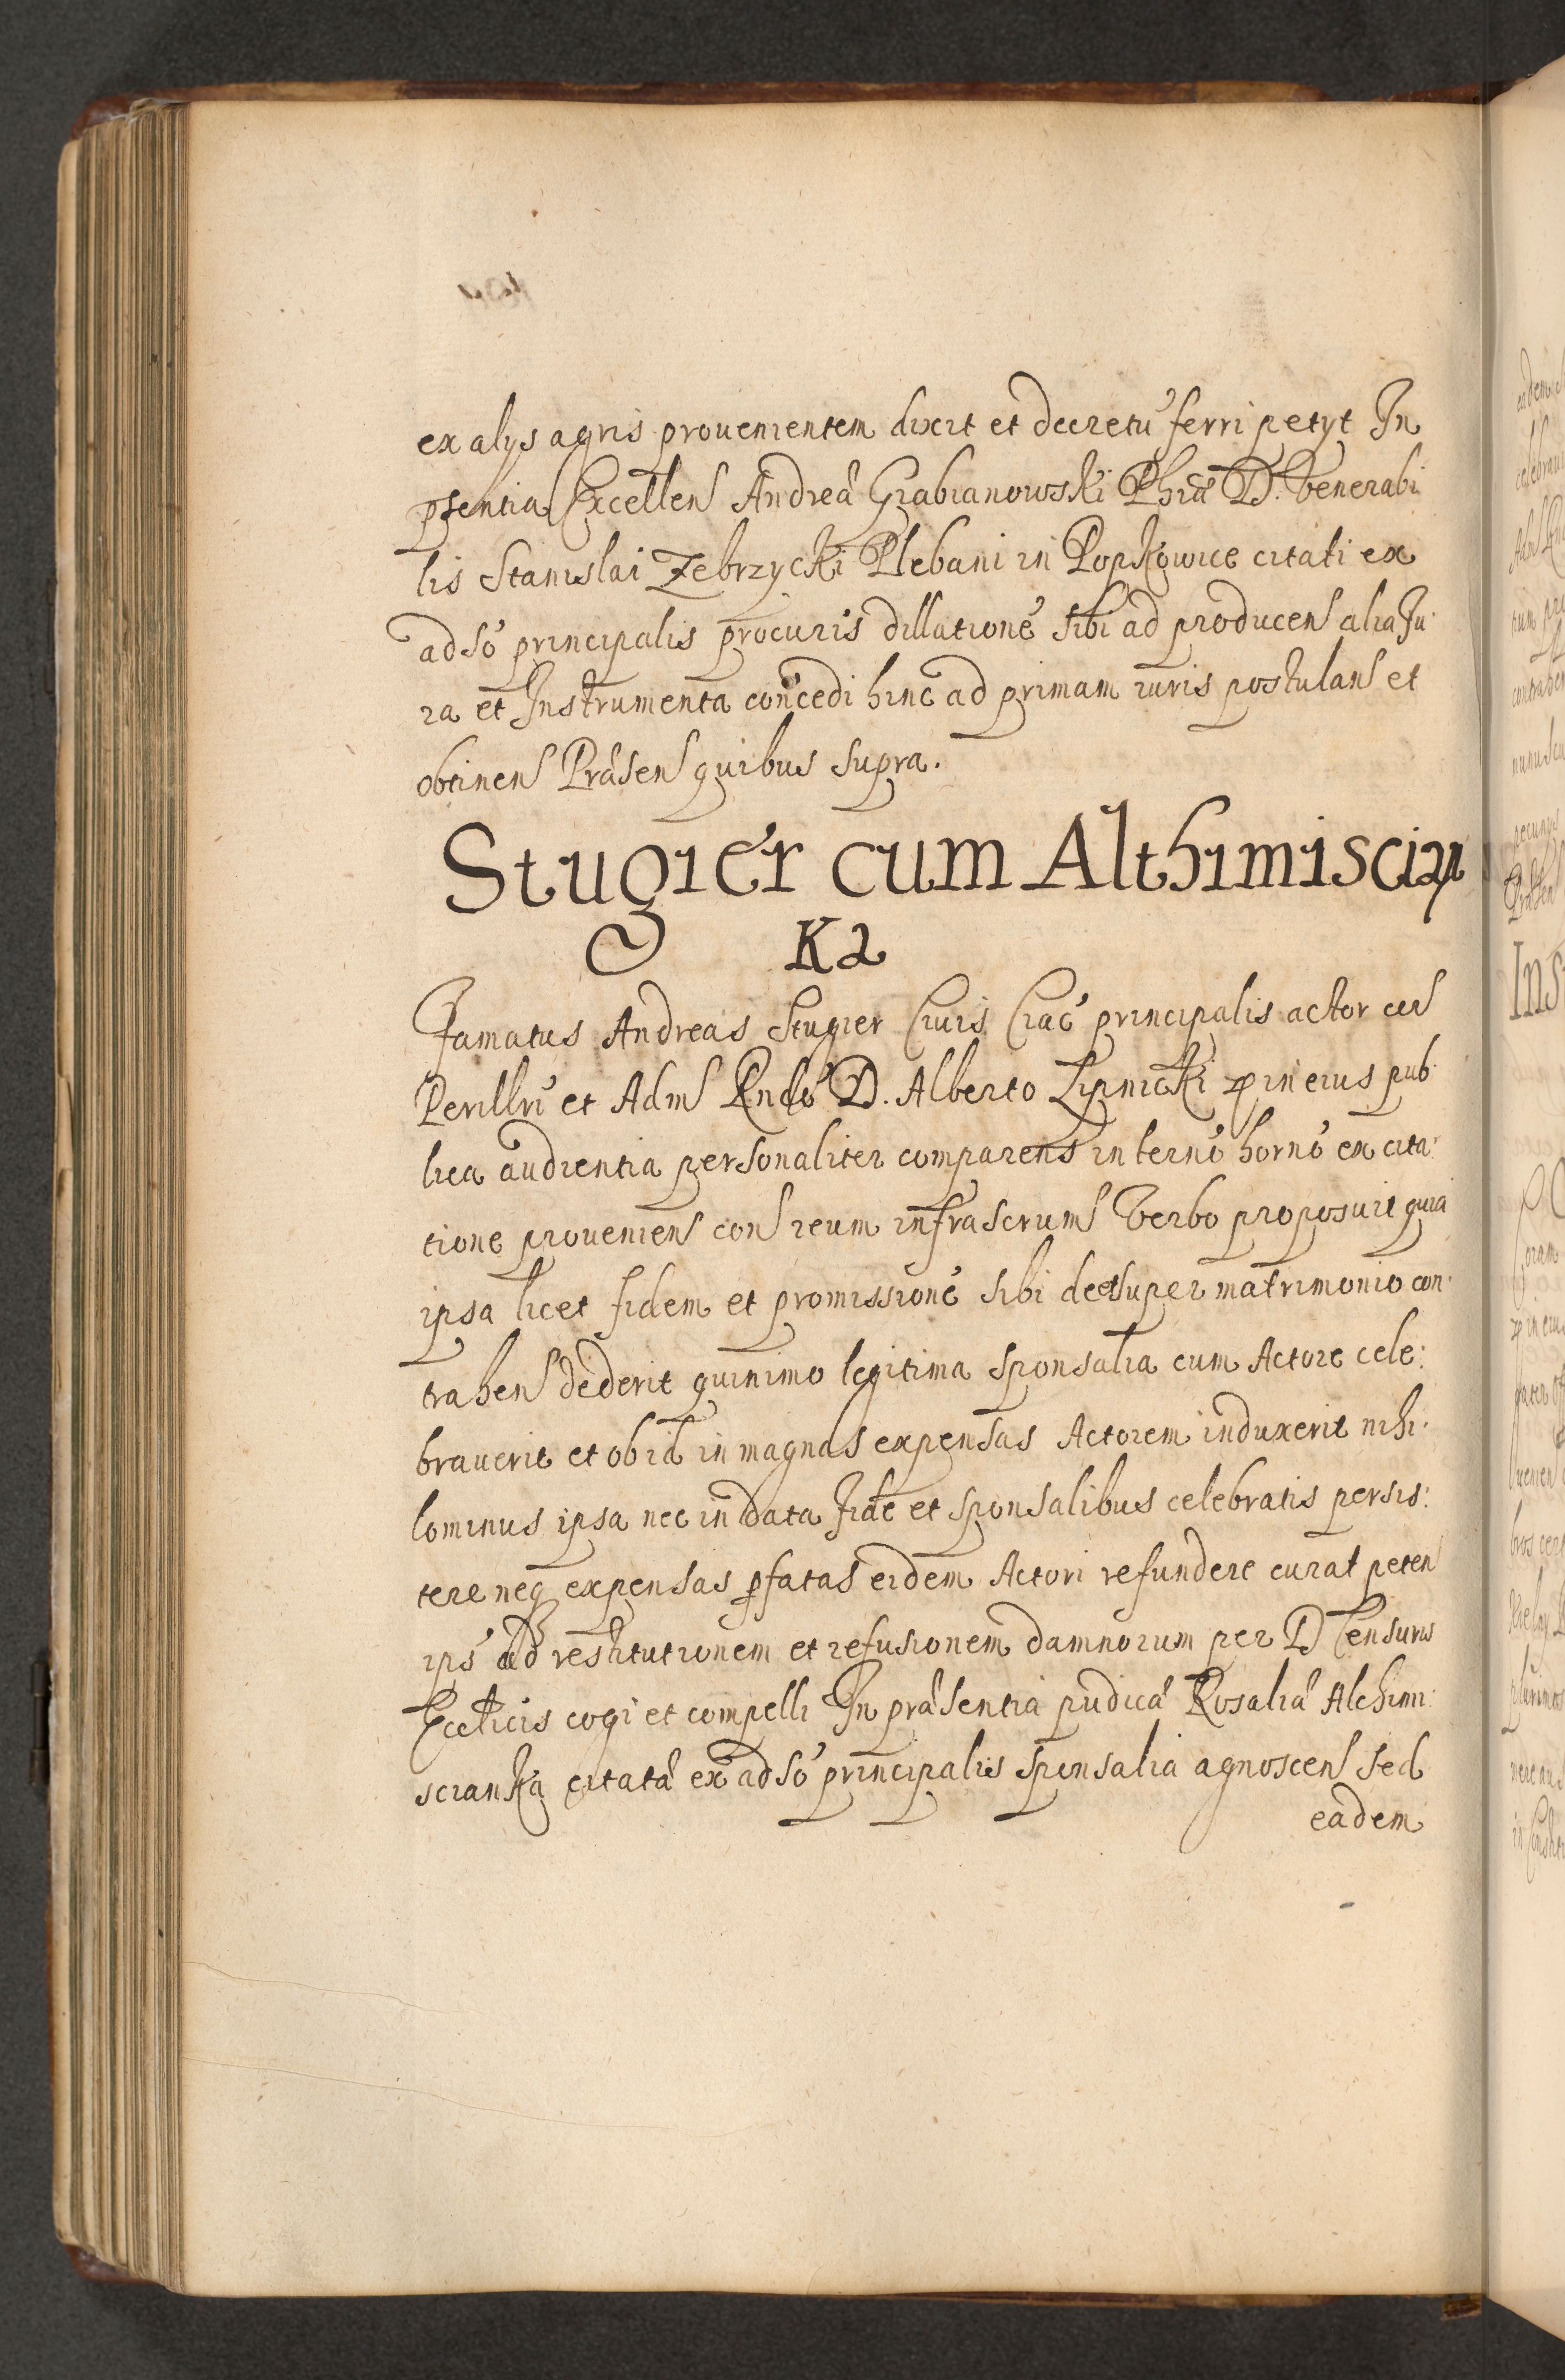 ex alys agris prouenientem dixit et decretú ferri petyt In
pſentia Excellenſ Andreæ Grabianowski Phiæ D. Venerabi
lis Stanislai Zebrzycki Plebani in Popkowice citati ex
adsó principalis procuris dillationé sibi ad producenſ alia Ju:
ra et Instrumenta concedi hinc ad primam iuris postulanſ et
obtinenſ Præsenſ quibus supra.
Stugier cum Althimiscian
Ka
Famatus Andreas Stugier Ciuis Crac principalis actor corſ
Perillri et Adm Rndó D. Alberto Lipnicki in eius pub:
lica audientia personaliter comparens in termó hornó ex cita:
tione prouenienſ conſ ream infrascrumſ Verbo proposuit quia
ipsa licet fidem et promissioné sibi desuper matrimonio con:
trahenſ dederit quinimo legitima sponsalia cum Actore cele:
brauerit et ob id in magnas expensas Actorem induxerit nihi:
lominus ipsa nec in data fide et sponsalibus celebratis persis:
tere neq expensas pfatas eidem Actori refundere curat petenſ
ips ad restitutionem et refusionem damnorum per D Censuras
Eccłicis cogi et compelli In præsentia pudicæ Rosaliæ Alchimi:
scianka citatæ ex adsó principalis sponsalia agnoscenſ sed
eadem